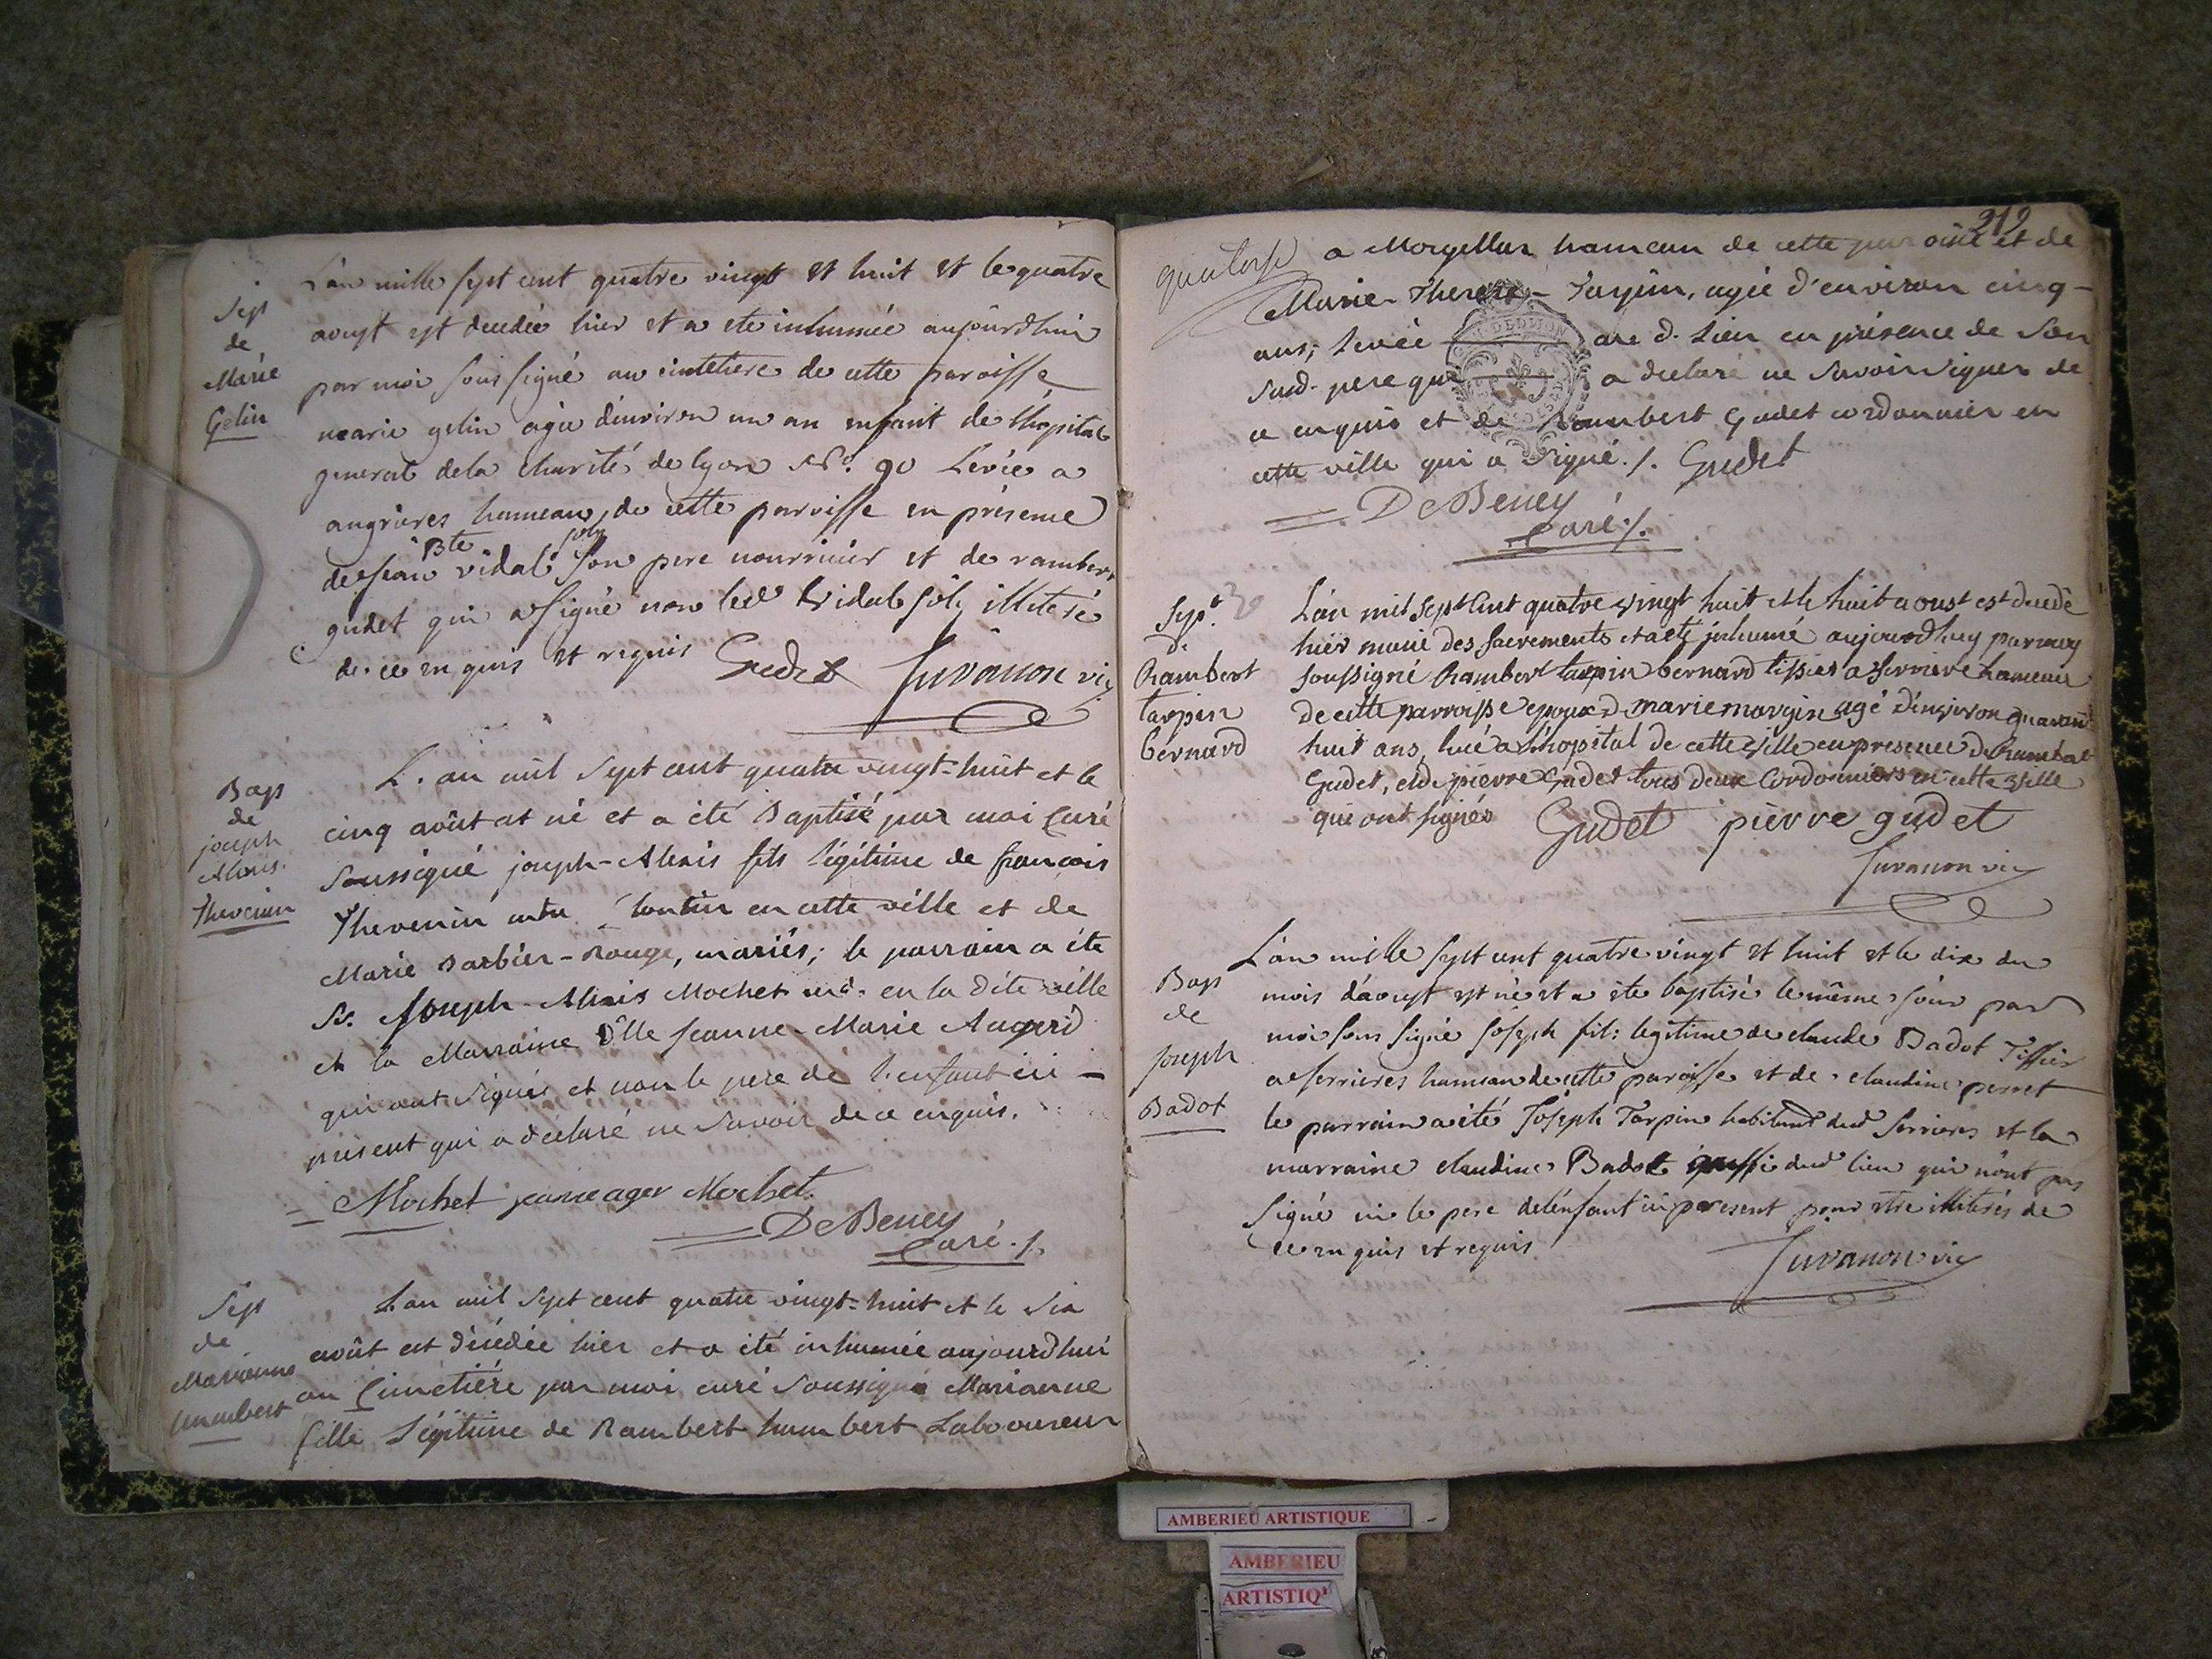 Sep
de
Marie
Gelin
L'an mille sept cent quatre vingt et huit et le quatre
aoust est decedée hier et a ete inhumée aujourdhui
par moi sous signé au cimetiere de cette paroisse
marie gelin agée d'environ un an enfant de l'hopital
general de la charité de lyon N.° 90 Levée a
angrieres hameau de cette paroisse en présence
de jean Bte vidal joly son pere nourricier et de rambert
gudet qui a signé non led vidal joly illiteré
de ce enquis et requis Gudet Juvanon vic
Bap
de
joseph
Alexis
Thevenin
L'an mil sept cent quatre vingt-huit et le
cinq août est né et a été Baptisé par moi Curé
Soussigné joseph-Alexis fils légitime de françois
Thevenin en cette ville et de
Marie Barbier-Rouge, mariés; le parrain a été
Sr. Joseph-Alexis Mochet md. en la dite ville
et la Marraine Dlle Jeanne-Marie
qui ont signés et non le pere de l'enfant ici-
présent qui a déclaré ne savoir de ce enquis.
Mochet jeanne ager Mochet.
De Beney
Curé ./.
Sep
de
Marianne
humbert
L'an mil sept cent quatre vingt-huit et le six
août est décédée hier et a été inhumée aujourdhui
au Cimetiére par moi curé Soussigné Marianne
fille légitime de Rambert humbert Laboureur
319
quatorse
a hameau de cette paroisse et de
Marie-Therese Tarpin, agée d'environ cinq-
ans; levée au d. lieu en présence de Son
susd. pere qui a declaré ne Savoir Signer de
ce enquis et de Rambert Gudet cordonnier en
cette ville qui a Signé ./. Gudet
De Beney
Curé ./.
Sep.t
de
Rambert
tarpin
bernard
L'an mil sept Cent quatre vingt huit et le huit aoust est decedé
hier muni des sacrements et a eté inhumé aujourdhuy par moy
soussigné Rambert tarpin bernard tissier a serriere hameau
de cette parroisse epoux de marie mangin agé d'environ quarante
huit ans, levé a l'hopital de cette ville en presence de Rambert
Gudet, et de pierre Gudet tous deux Cordonniers en cette ville
qui ont signés Gudet pierre gudet
Juvanon vic
Bap
de
joseph
Badot
L'an mille sept cent quatre vingt et huit et le dix du
mois d'aoust est né et a ete baptisé le même jour par
moi sous signé joseph fils legitime de claude Badot Tissier
a serrieres hameau de cette paroisse et de claudine perret
le parrain a été Joseph Tarpin habitant dud serrieres et la
marraine claudine Badot aussi dud lieu qui n'ont pas
signé ni le pere de l'enfant ici present pour etre illiterés de
ce enquis et requis
Juvanon vic
AMBERIEU ARTISTIQUE
AMBERIEU
ARTISTIQ